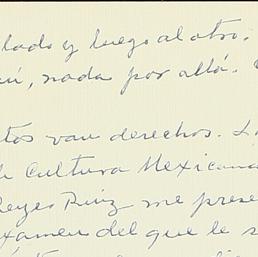 lado y luego al otro.
uí, nada por allá.
tos van derechos. La
Cultura Mexicana
Reyes Ruiz me prese
xámen del que le s